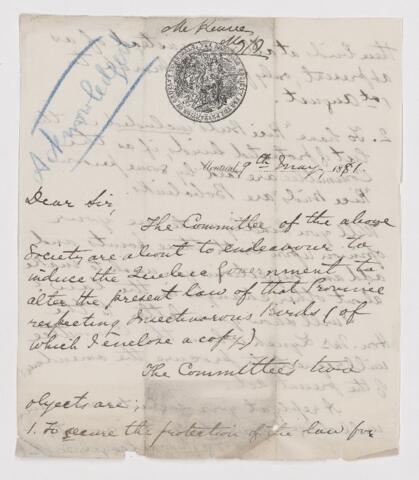 McKenzie
Acknowledged
Montreal 9th May 1881.
Dear Sir,
The Committee of the above
Society are about to endeavour to
induce the Quebec Government to
alter the present law of that Province
respecting Insectivorous Birds (of
which I enclose a copy)
The Committee's twin
objects are;
1. To secure the protection of the law for